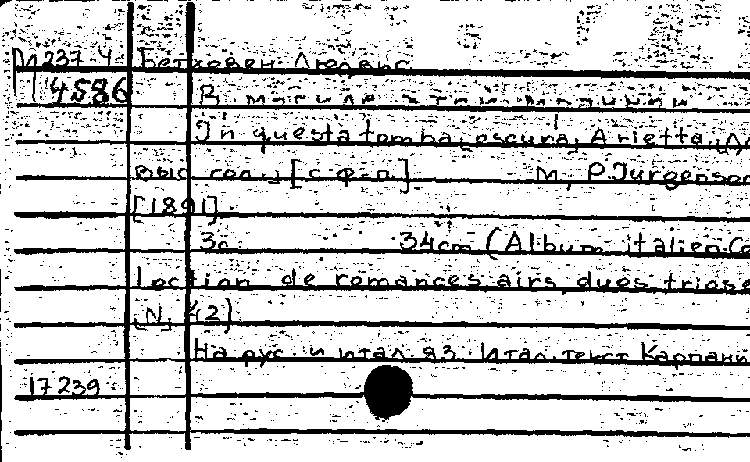 М 237 4 Бетховен Людвиг
4586 В могиле этой мрачной
In questa tomba oscura, Arietta.
выс сол., [с ф-п] М, P. Jurgenson
[1891].
3с. 34cm (Album italien. Co
lection de romances airs, duos, trios e
N. 42)
На рус. и итал. яз. Итал. текст Карпани
17239